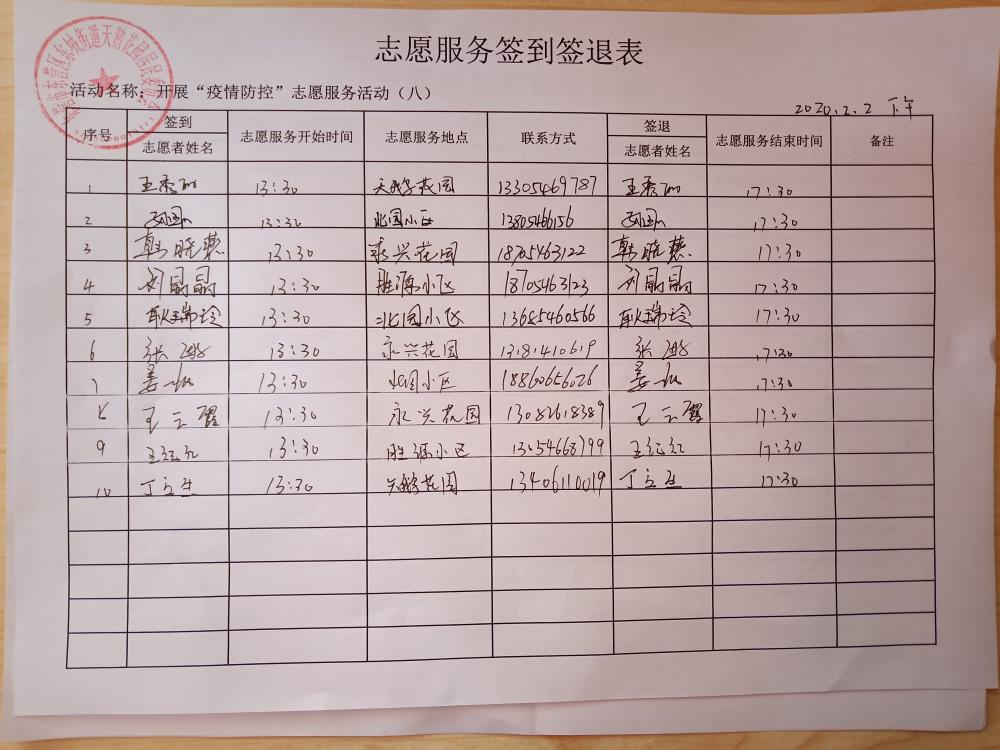 志愿服务签到签退表
东营区东城街道天鹅花园居民委员会
活动名称：开展“疫情防控”志愿服务活动（八）
2020.2.2 下午
序号 签到 志愿者姓名 志愿服务开始时间 志愿服务地点 联系方式 签退 志愿者姓名 志愿服务结束时间 备注
1 王秀丽 13:30 天鹅花园 13305469787 王秀丽 17:30
2 13:30 北国小区 13805466156 17:30
3 韩晓燕 13:30 永兴花园 18705463122 韩晓燕 17:30
4 刘晶晶 13:30 胜源小区 18705463123 刘晶晶 17:30
5 耿瑞玲 13:30 北国小区 13685460566 耿瑞玲 17:30
6 张 13:30 永兴花园 13181410619 张 17:30
7 姜 13:30 北国小区 18860656026 姜 17:30
8 王云霞 13:30 永兴花园 13082618389 王云霞 17:30
9 王红红 13:30 胜源小区 王红红 17:30
10 丁立生 13:30 天鹅花园 13406110019 丁立生 17:30